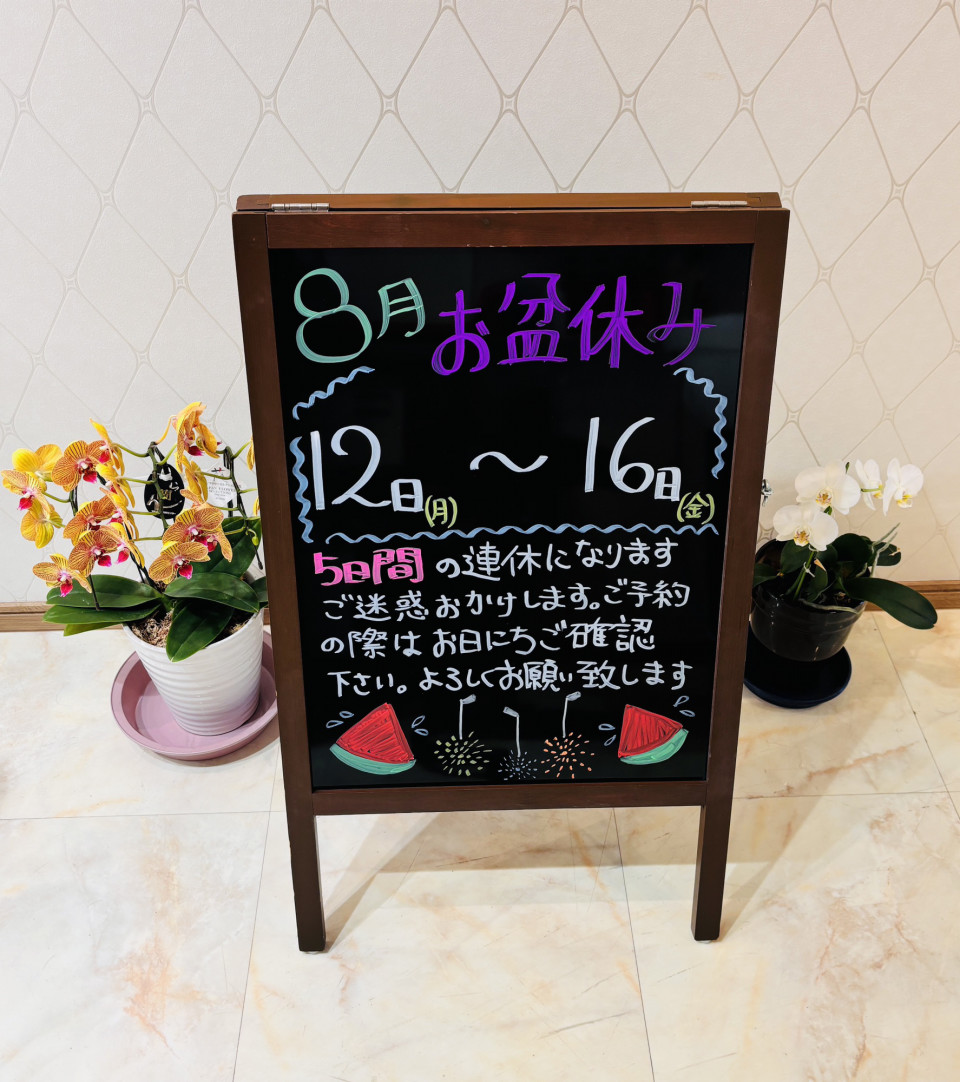 8月 お盆休み
12日(月) 〜 16日(金)
5日間の連休になります
ご迷惑おかけします。ご予約
の際はお日にちご確認
下さい。よろしくお願い致します